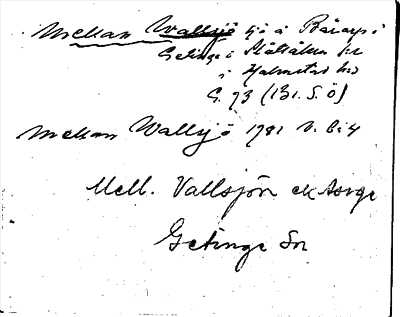 Mellan Wallsjö sjö å Bärarp i
Getinge i Slättåkra sn
i Halmstad hd
G. 73 (131. S. Ö)
Mellan Wallsjö 1781 N. 614
Mell. Vallsjön ek Asige
Getinge Sn